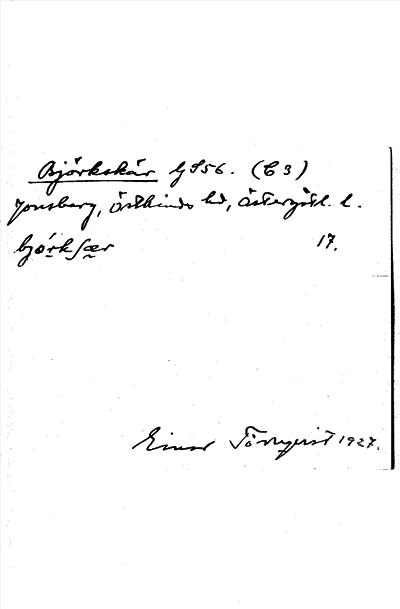 Björkskär GS56. (C3)
Jonsberg, Östkinds hd, Östergötl. l.
bjórkſær 17.
Einar Törnqvist 1927.